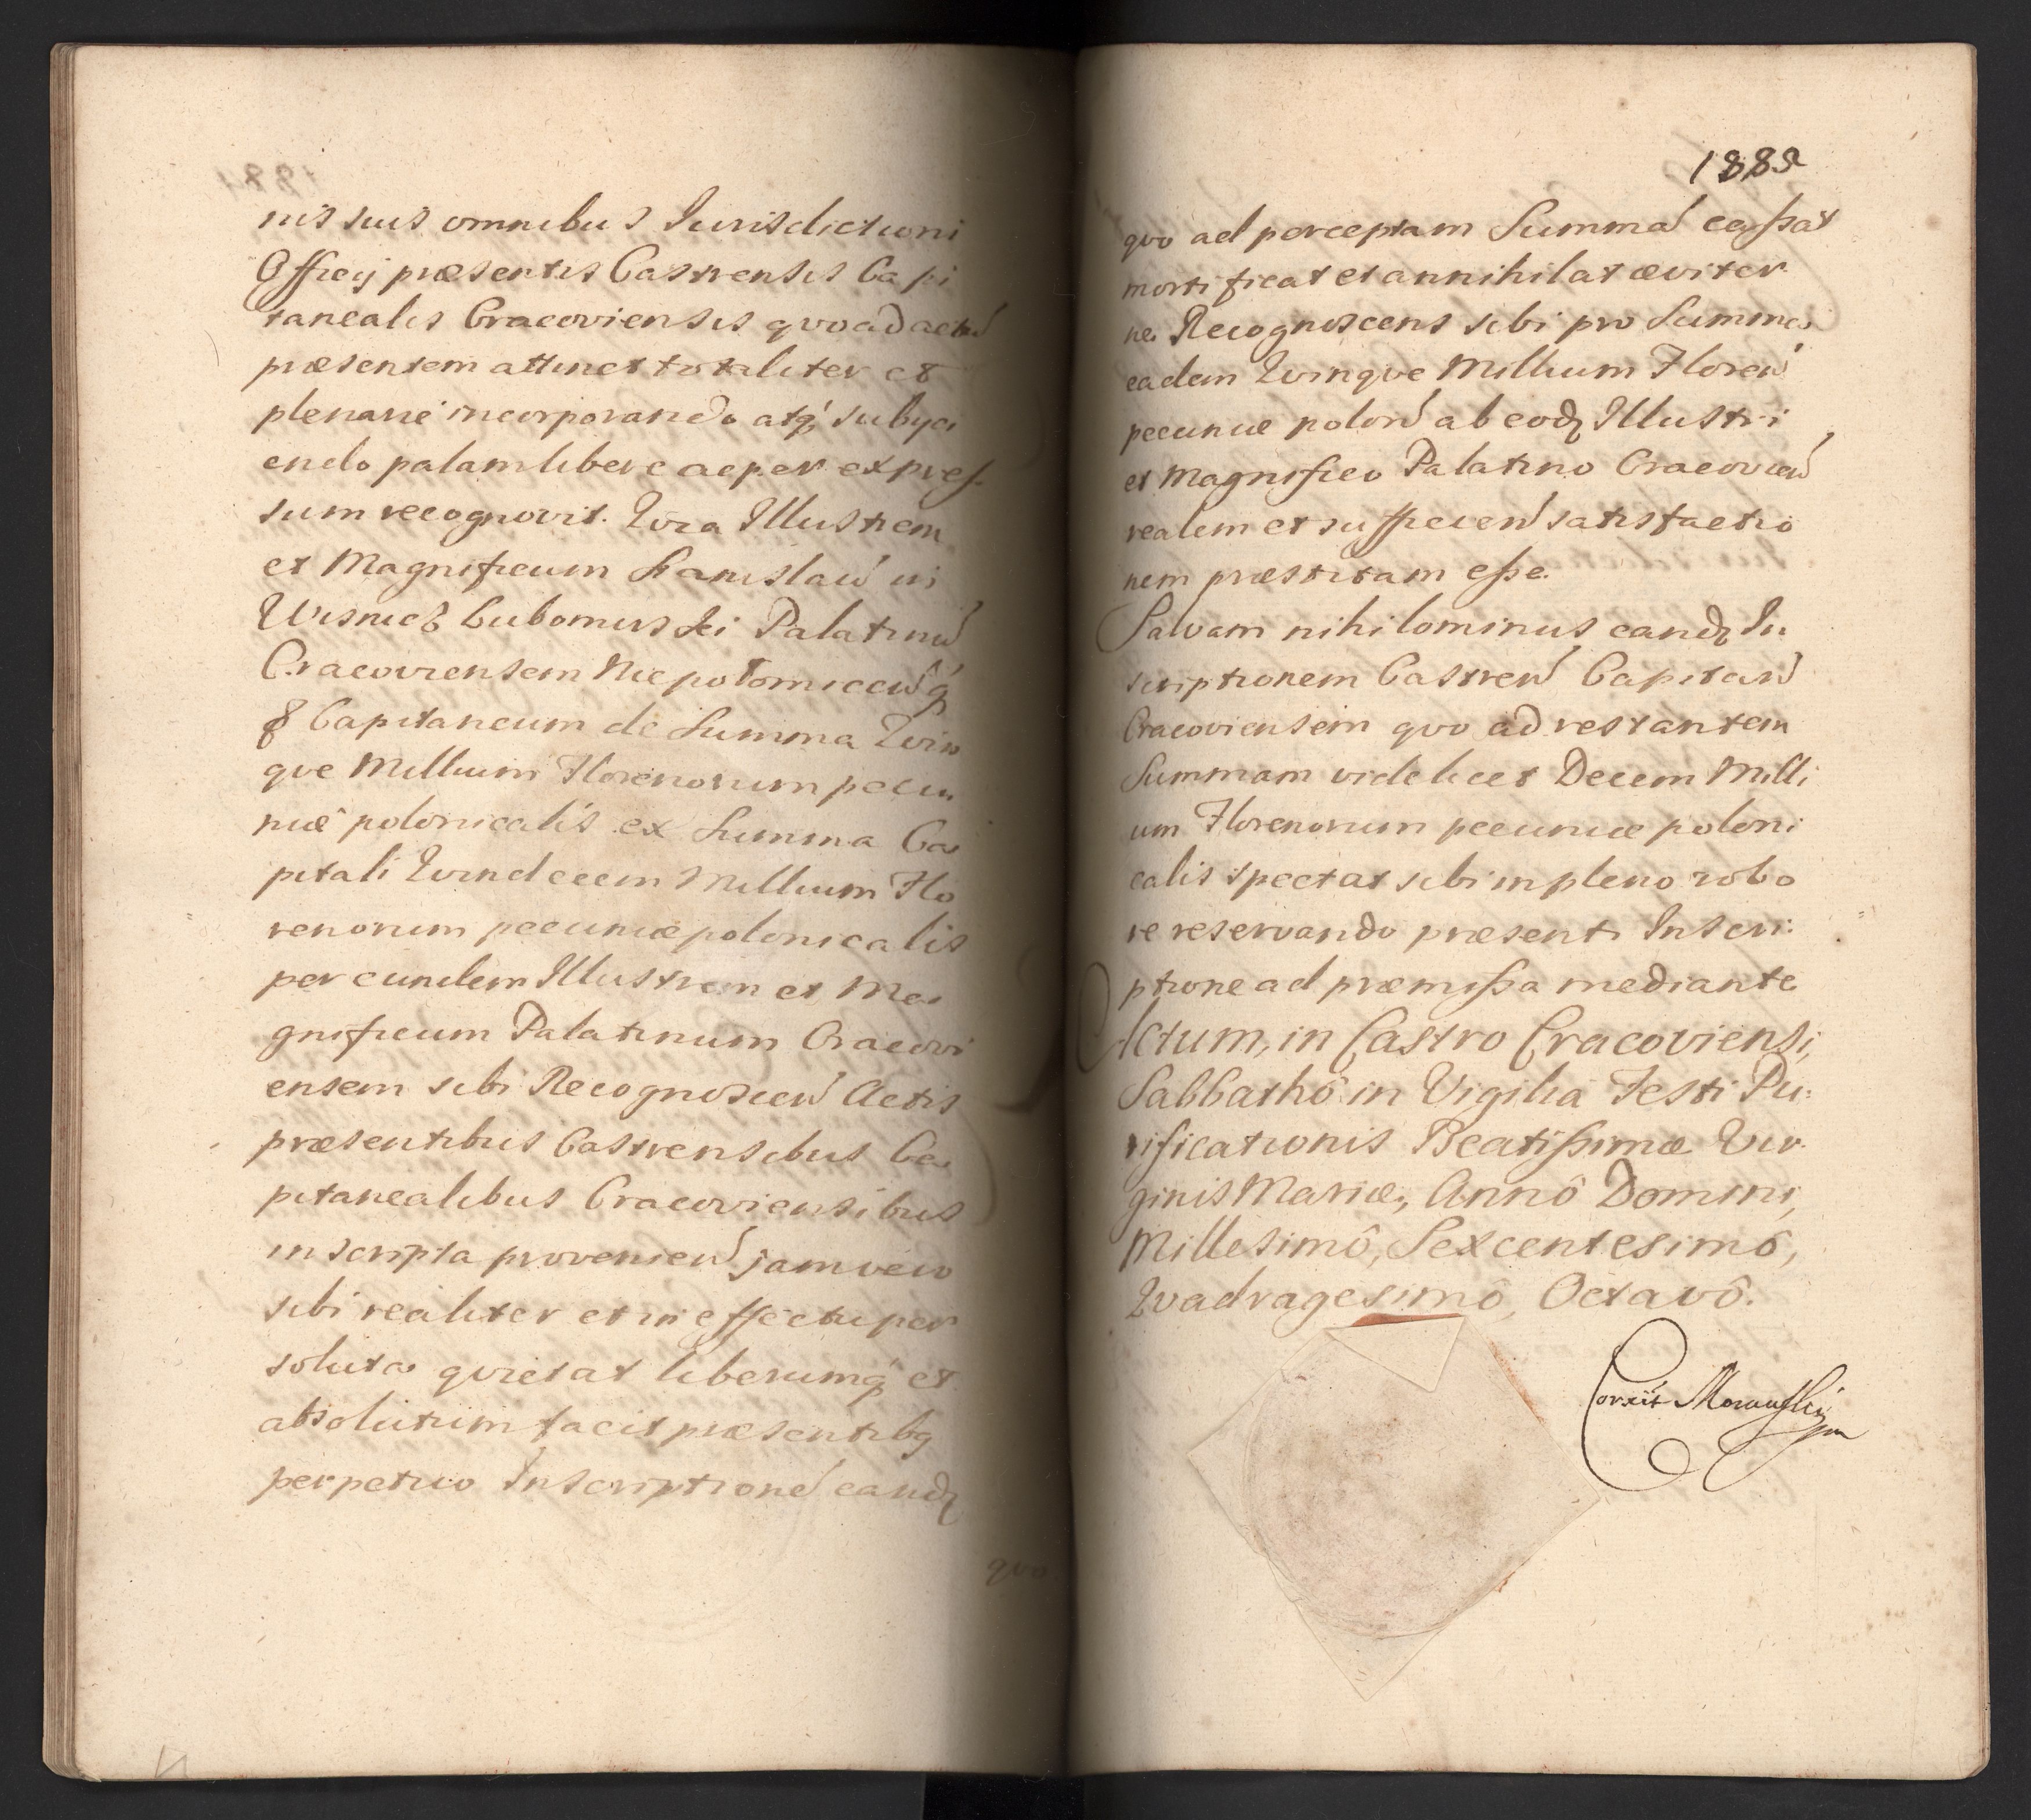 nis suis omnibus Iurisdictioni
Officij præsentis Castrensis Capi
tanealis Cracoviensis qvoad actu
præsentem attinet totaliter et
plenarie incorporando atq; subyci
endo palam libere ac per expres-
sum recognovit. Qvia Illustrem
et Magnificum Stanislau in
Wisnicz Lubomirski Palatinu
Cracoviensem Niepołomiceń q
Capitaneum de Summa Qvin
qve Millium Florenorum pecu
niæ polonicalis ex Summa Ca
pitali Qvindecem Millium Flo
renorum pecuniæ polonicalis
per eundem Illustrem et Ma
gnificum Palatinum Cracovi
ensem sibi Recognoscen Actis
præsentibus Castrensibus Ca
pitanealibus Cracoviensibus
inscripta provenien jam vero
sibi realiter et in effectu per
soluta qvietat liberumq; et
absolutum facit præsentibq
perpetuo Inscriptione eandq
qvo
1885
qvo ad perceptam Summa cassat
mortificat et annihilat æviter
ne Recognoscens sibi pro Summa
eadem Qvinqve Millium Floren
pecuniæ polon ab eodq Illustri
et Magnifico Palatino Cracovien
realem et sufficien satisfactio
nem præstitam esse.
Salvam nihilominus eandq In
scriptionem Castren Capitan
Cracoviensem qvo ad restantem
Summam videlicet Decem Milli
um Florenorum pecuniæ poloni
calis spectat sibi in pleno robo
re reservando præsenti Inscri:
ptione ad præmissa mediante
Actum, in Castro Cracoviensi,
Sabbathô in Vigilia Festi Pu:
rificationis Beatissimæ Vir
ginis Mariæ, Annô Domini,
Millesimô, Sexcentesimô,
Qvadragesimô, Octavô.
Correxit